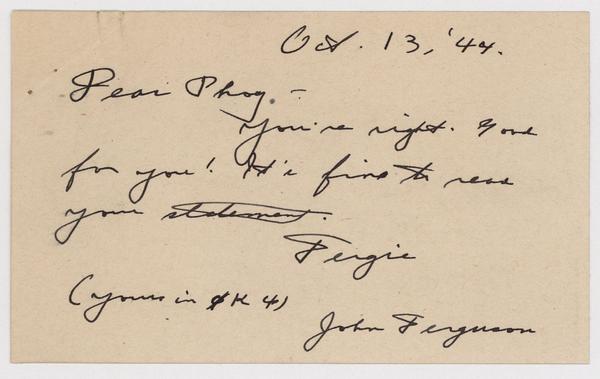 Oct. 13, '44.
Dear Phog. -
You're right. Good
for you! It's fine to read
your statement.
Fergie
(yours in K 4)
John Ferguson